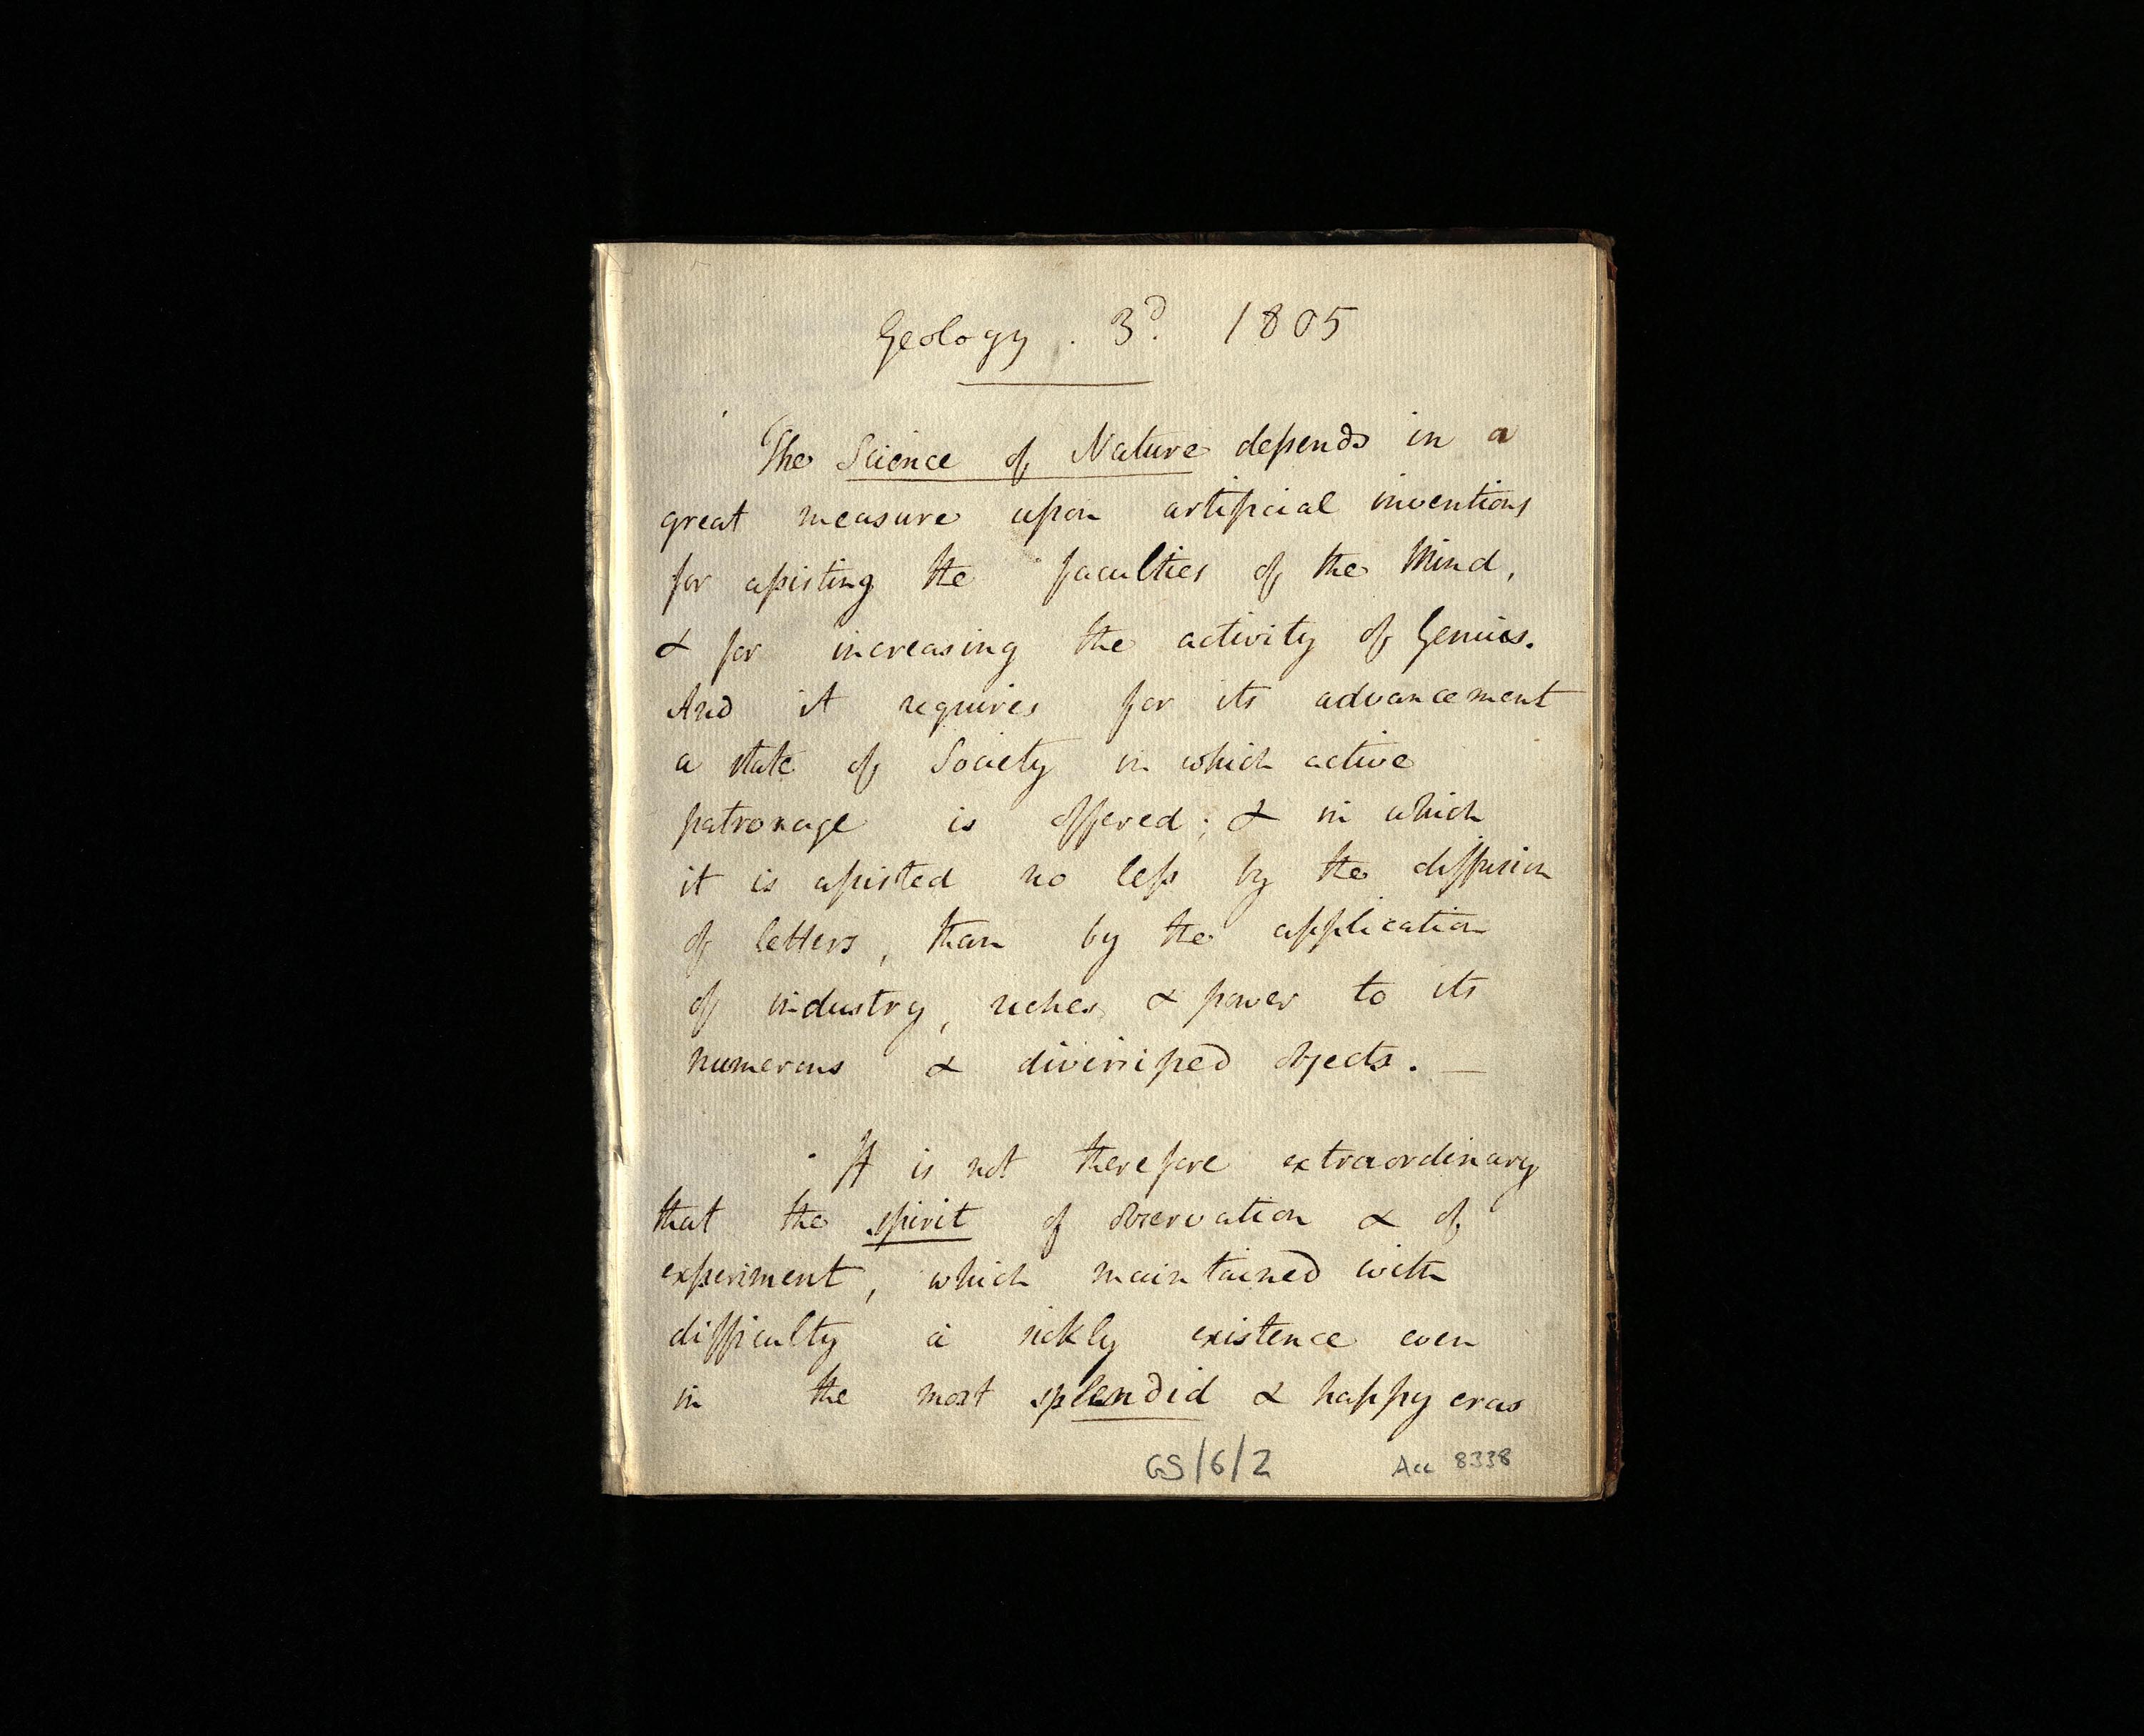 Geology . 3d. 1805
The Science of Nature depends in a
great measure upon artificial inventions
for assisting the faculties of the Mind,
& for increasing the activity of Genius.
And it requires for its advancement
a state of Society in which active
patronage is offered; & in which
it is assisted no less by the diffusion
of letters, than by the application
of industry, riches, & power to its
numerous & diversified objects. —
It is not therefore extraordinary
that the spirit of observation & of
experiment, which maintained with
difficulty a sickly existence even
in the most splendid & happy eras
GS/6/2 Acc 8338